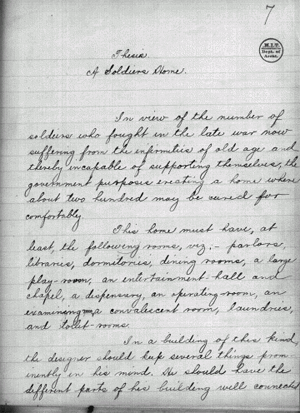 7
M.I.T.
Dept. of
Archt.
Thesis
A Soldiers Home.
In view of the number of
soldiers who fought in the late war now
suffering from the infirmities of old age and
thereby incapable of supporting themselves, the
government purposes creating a home where
about two hundred may be cared for
comfortably
This home must have, at
least, the following rooms, viz; – parlors,
libraries, dormitories, dining rooms, a large
play-room, an entertainment-hall and
chapel, a dispensary, an operating-room, an
examining, a convalescent room, laundries,
and toilet-rooms.
In a building of this kind,
the designer should keep several things prom-
inently in his mind. He should have the
different parts of his building well connected